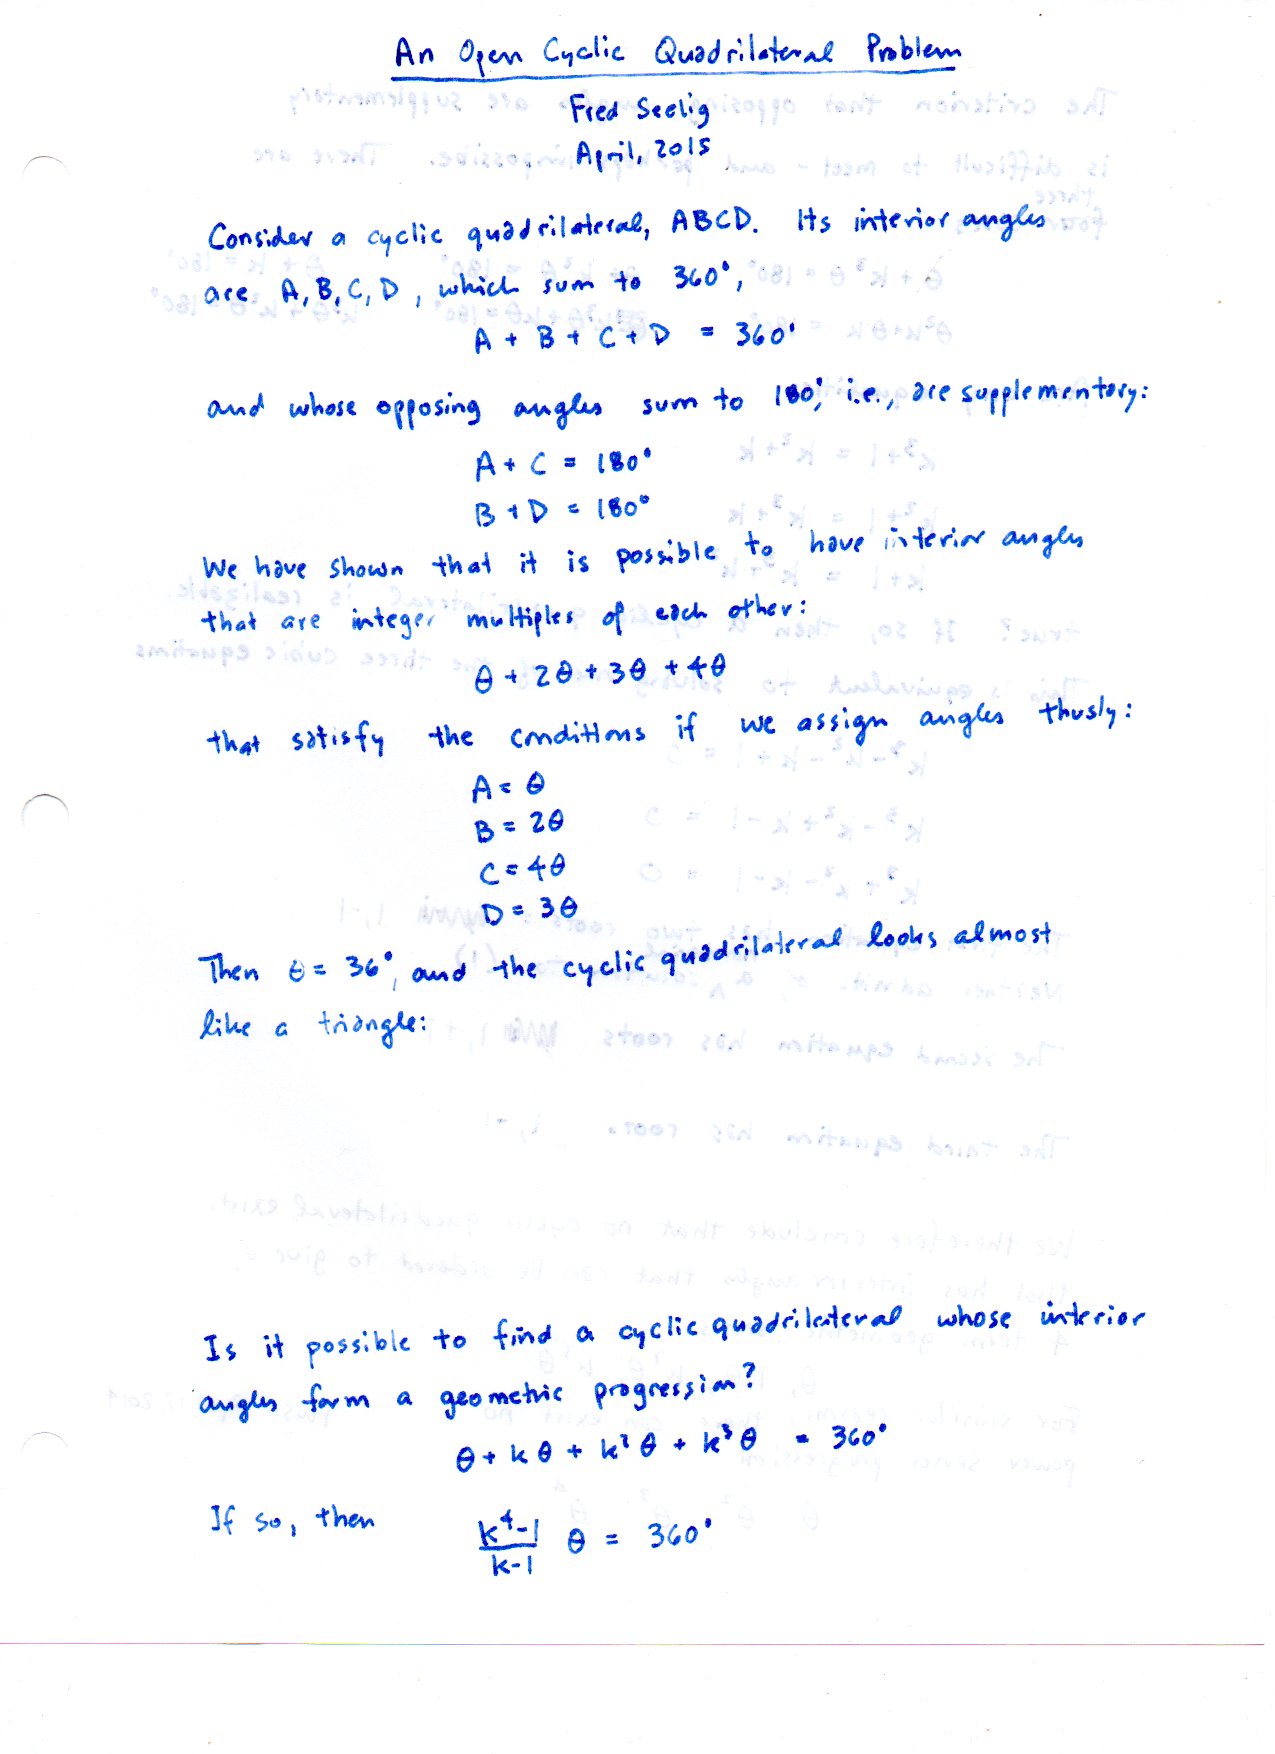 An Open Cyclic Quadrilateral Problem
Fred Seelig
April, 2015
Consider a cyclic quadrilateral, ABCD. Its interior angles
are A, B, C, D, which sum to 360°,
A + B + C + D = 360°
and whose opposing angles sum to 180°, i.e., are supplementary:
A + C = 180°
B + D = 180°
We have shown that it is possible to have interior angles
that are integer multiples of each other:
θ + 2θ + 3θ + 4θ
that satisfy the conditions if we assign angles thusly:
A = θ
B = 2θ
C = 4θ
D = 3θ
Then θ = 36°, and the cyclic quadrilateral looks almost
like a triangle:
Is it possible to find a cyclic quadrilateral whose interior
angles form a geometric progression?
θ + kθ + k²θ + k³θ = 360°
If so, then
k⁴-1
k-1
θ = 360°